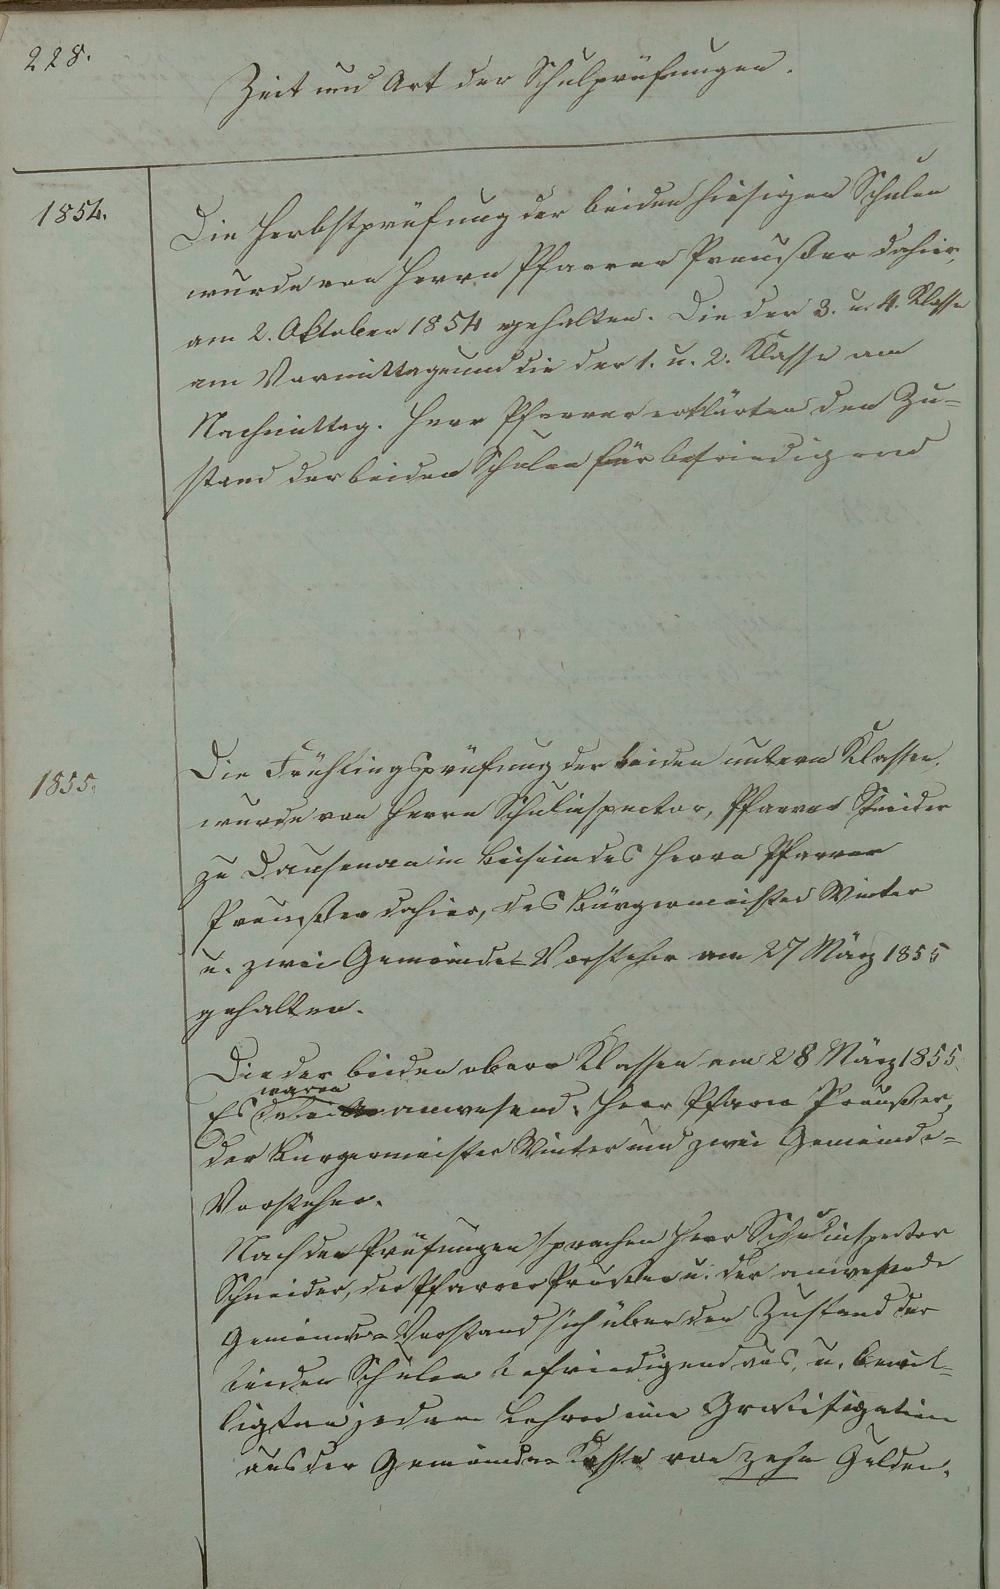 228.
Zeit und Art der Schulprüfungen.
1854.
Die Herbstprüfung der beiden hiesigen Schulen
wurde von Herrn Pfarrer Preußer dahier,
am 2. Oktober 1854 gehalten. Die der 3. u. 4. Klasse
am Vormittage und die der 1. u. 2. Klasse am
Nachmittag. Herr Pfarrer erklärten den Zu=
stand der beiden Schulen für befriedigend
1855.
Die Frühlingsprüfung der beiden untern Klassen,
wurde von Herrn Schulinspector, Pfarrer
zu Dausenau im Beisein des Herrn Pfarrer
Preußer dahier, des Bürgermeister Winter
u. zwei Gemeinde=Vorsteher am 27 März 1855
gehalten.
Die der beiden obern Klassen am 28 März 1855.
waren
Es dabei anwesend: Herr Pfarrer Preußer,
der Bürgermeister Winter und zwei Gemeinde=
Vorsteher.
Nach den Prüfungen sprachen Herr Schulinspector
Schneider, der Pfarrer Preußer u. der anwesende
Gemeinde=Vorstand sich über den Zustand der
beiden Schulen befriedigend aus, u. bewil=
ligten jedem Lehrer eine Gratifigation
aus der Gemeinde=Kasse von zehn Gulden.